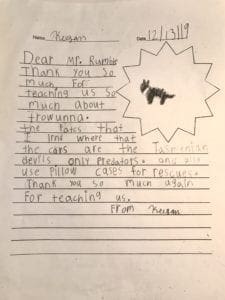 Name Keegan
Date 12/13/19
Dear Mr. Rumble
Thank you so
much For
teaching us so
much about
trowunna.
the Fates that
I lrnd where that
the cars are the Tasmanian
devils only predators. and also
use pillow cases for rescues.
Thank you so much again
For teaching us.
From Keegan